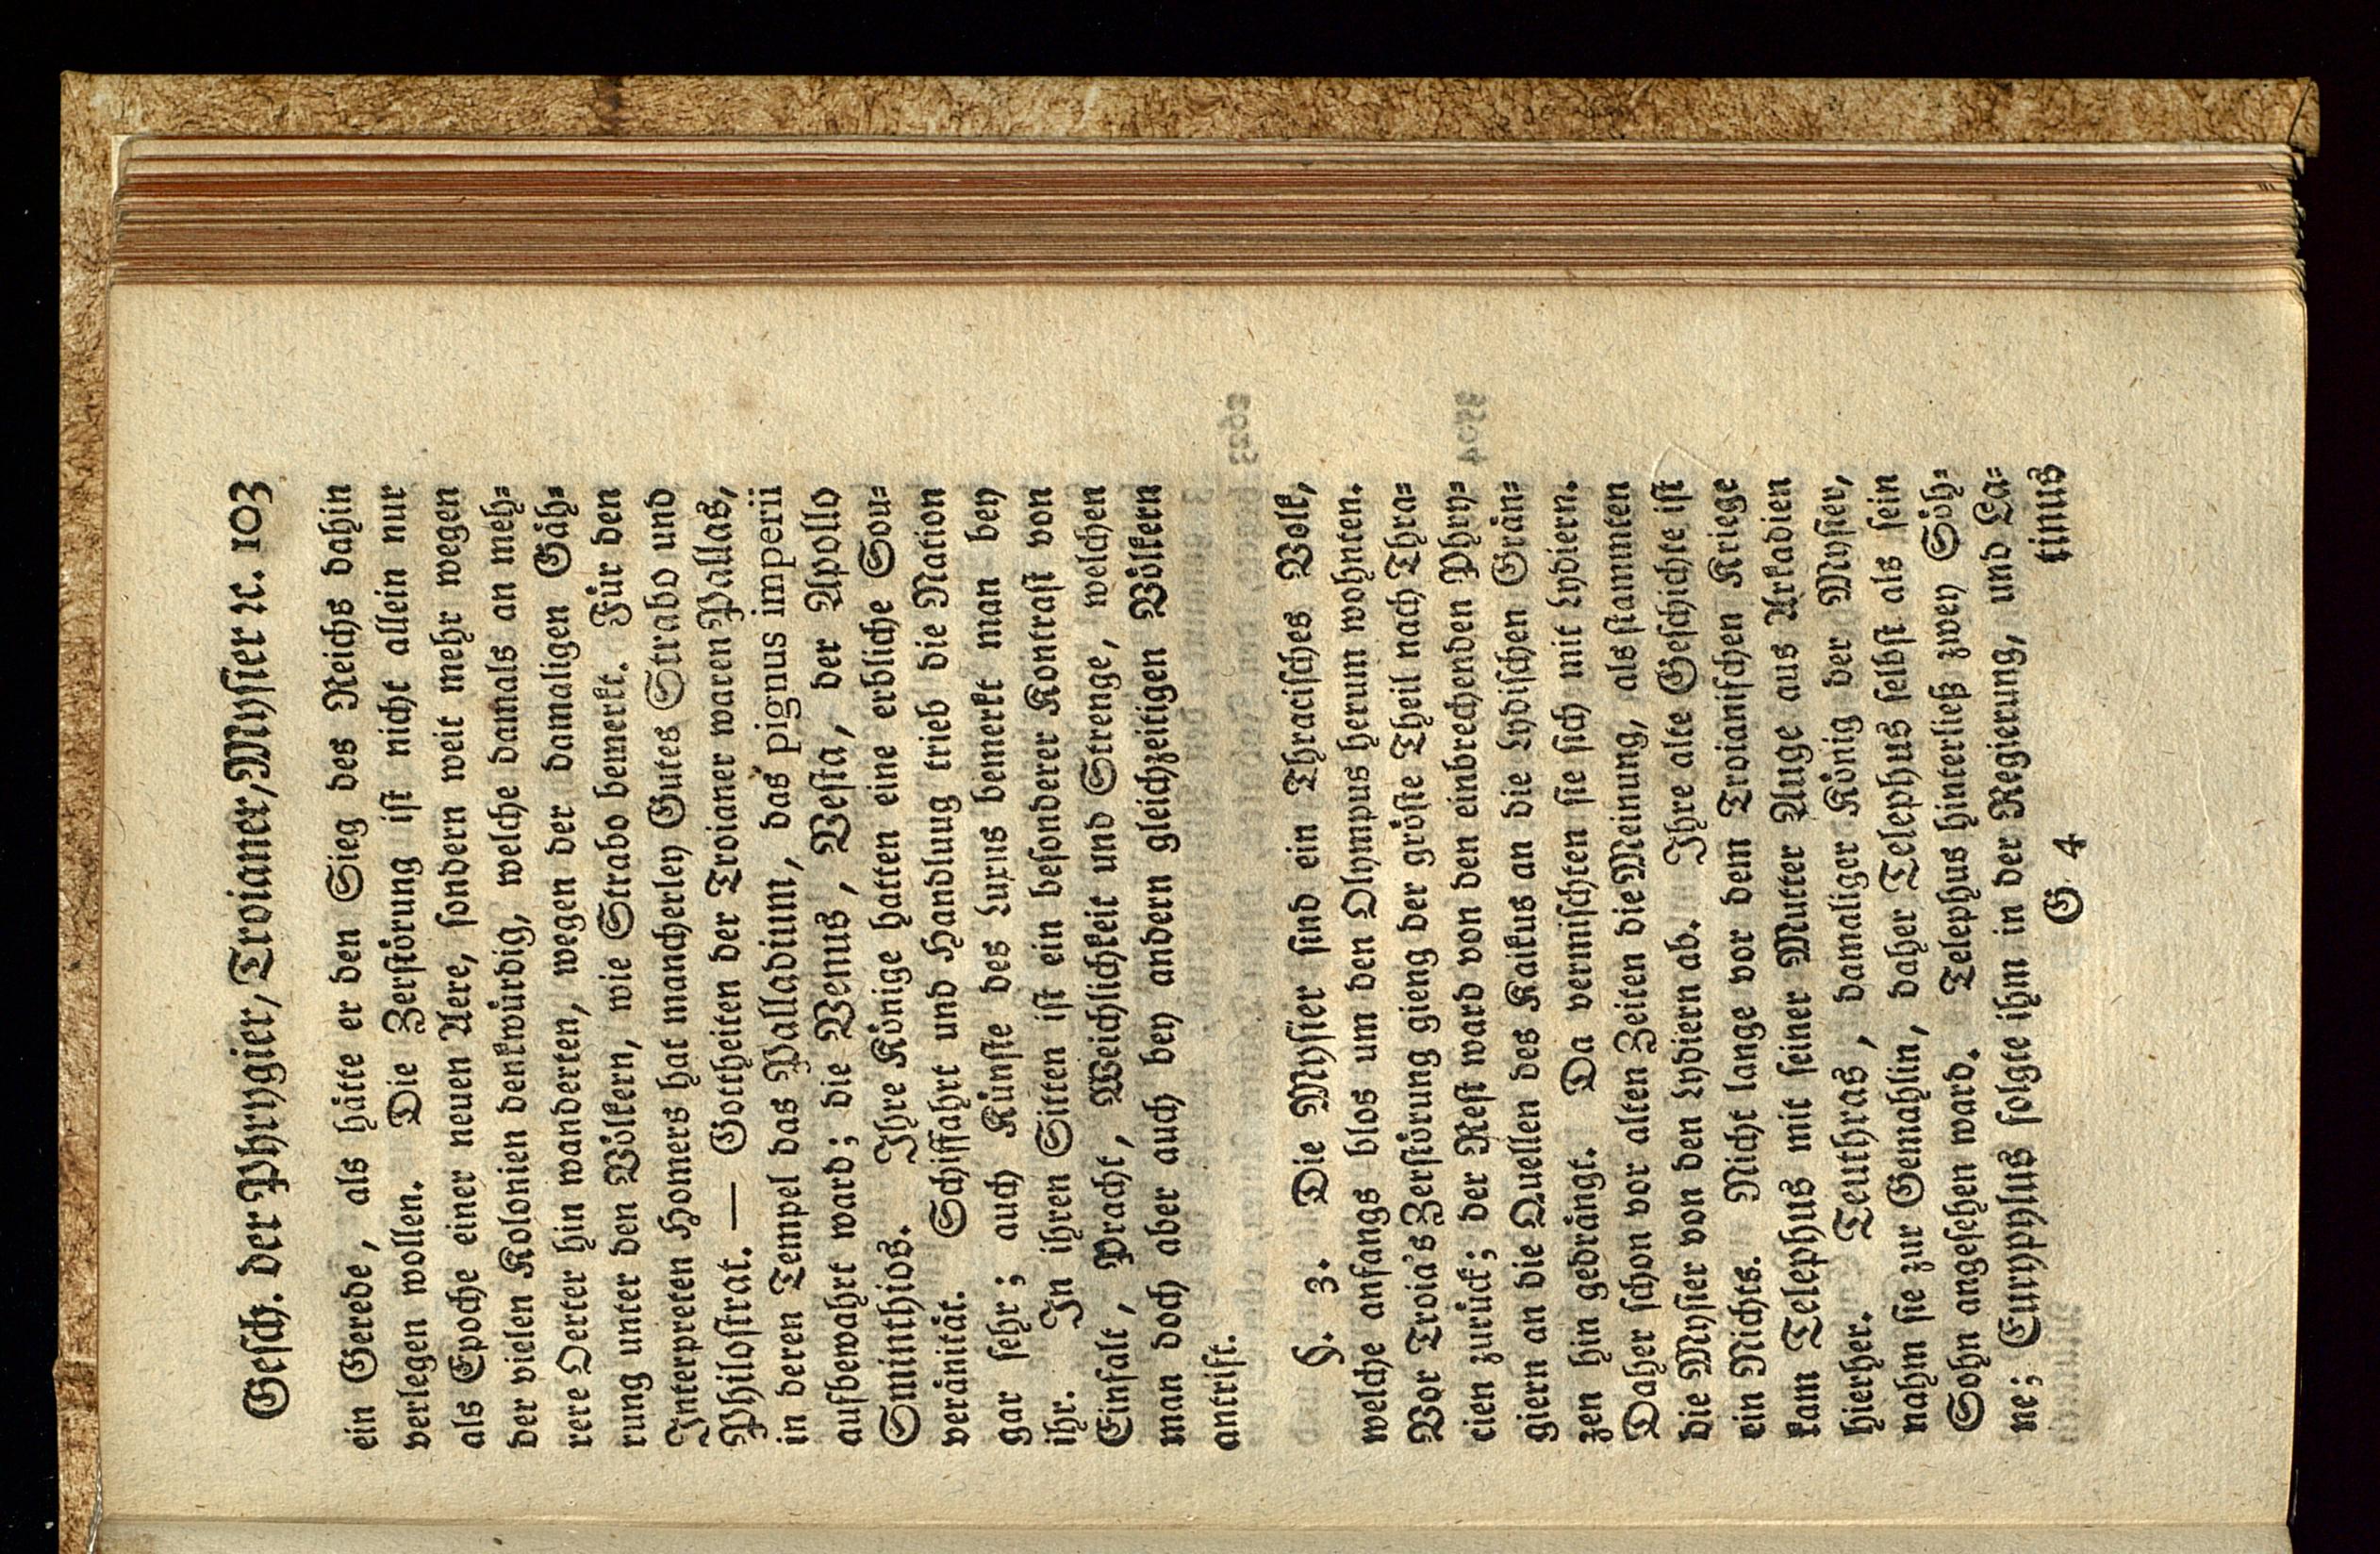 Gesch. der Phrygier, Troianer, Mysier ꝛc. 103
ein Gerede, als hätte er den Sieg des Reichs dahin
verlegen wollen. Die Zerstörung ist nicht allein nur
als Epoche einer neuen Aere, sondern weit mehr wegen
der vielen Kolonien denkwürdig, welche damals an meh⸗
rere Oerter hin wanderten, wegen der damaligen Gäh⸗
rung unter den Völkern, wie Strabo bemerkt. Für den
Interpreten Homers hat mancherley Gutes Strabo und
Philostrat. — Gottheiten der Troianer waren Pallas,
in deren Tempel das Palladium, das pignus imperii
aufbewahrt ward; die Venus, Vesta, der Apollo
Sminthios. Ihre Könige hatten eine erbliche Sou⸗
veränität. Schiffahrt und Handluug trieb die Nation
gar sehr; auch Künste des Luxus bemerkt man bey
ihr. In ihren Sitten ist ein besonderer Kontrast von
Einfalt, Pracht, Weichlichkeit und Strenge, welchen
man doch aber auch bey andern gleichzeitigen Völkern
antrift.
§. 3. Die Mysier sind ein Thracisches Volk,
welche anfangs blos um den Olympus herum wohnten.
Vor Troia's Zerstörung gieng der gröste Theil nach Thra⸗
cien zurück; der Rest ward von den einbrechenden Phry⸗
giern an die Quellen des Kaikus an die Lydischen Grän⸗
zen hin gedrängt. Da vermischten sie sich mit Lydiern.
Daher schon vor alten Zeiten die Meinung, als stammten
die Mysier von den Lydiern ab. Ihre alte Geschichte ist
ein Nichts. Nicht lange vor dem Troianischen Kriege
kam Telephus mit seiner Mutter Auge aus Arkadien
hierher. Teuthras, damaliger König der Mysier,
nahm sie zur Gemahlin, daher Telephus selbst als sein
Sohn angesehen ward. Telephus hinterließ zwey Söh⸗
ne; Eurypylus folgte ihm in der Regierung, und La⸗
G 4 tinus